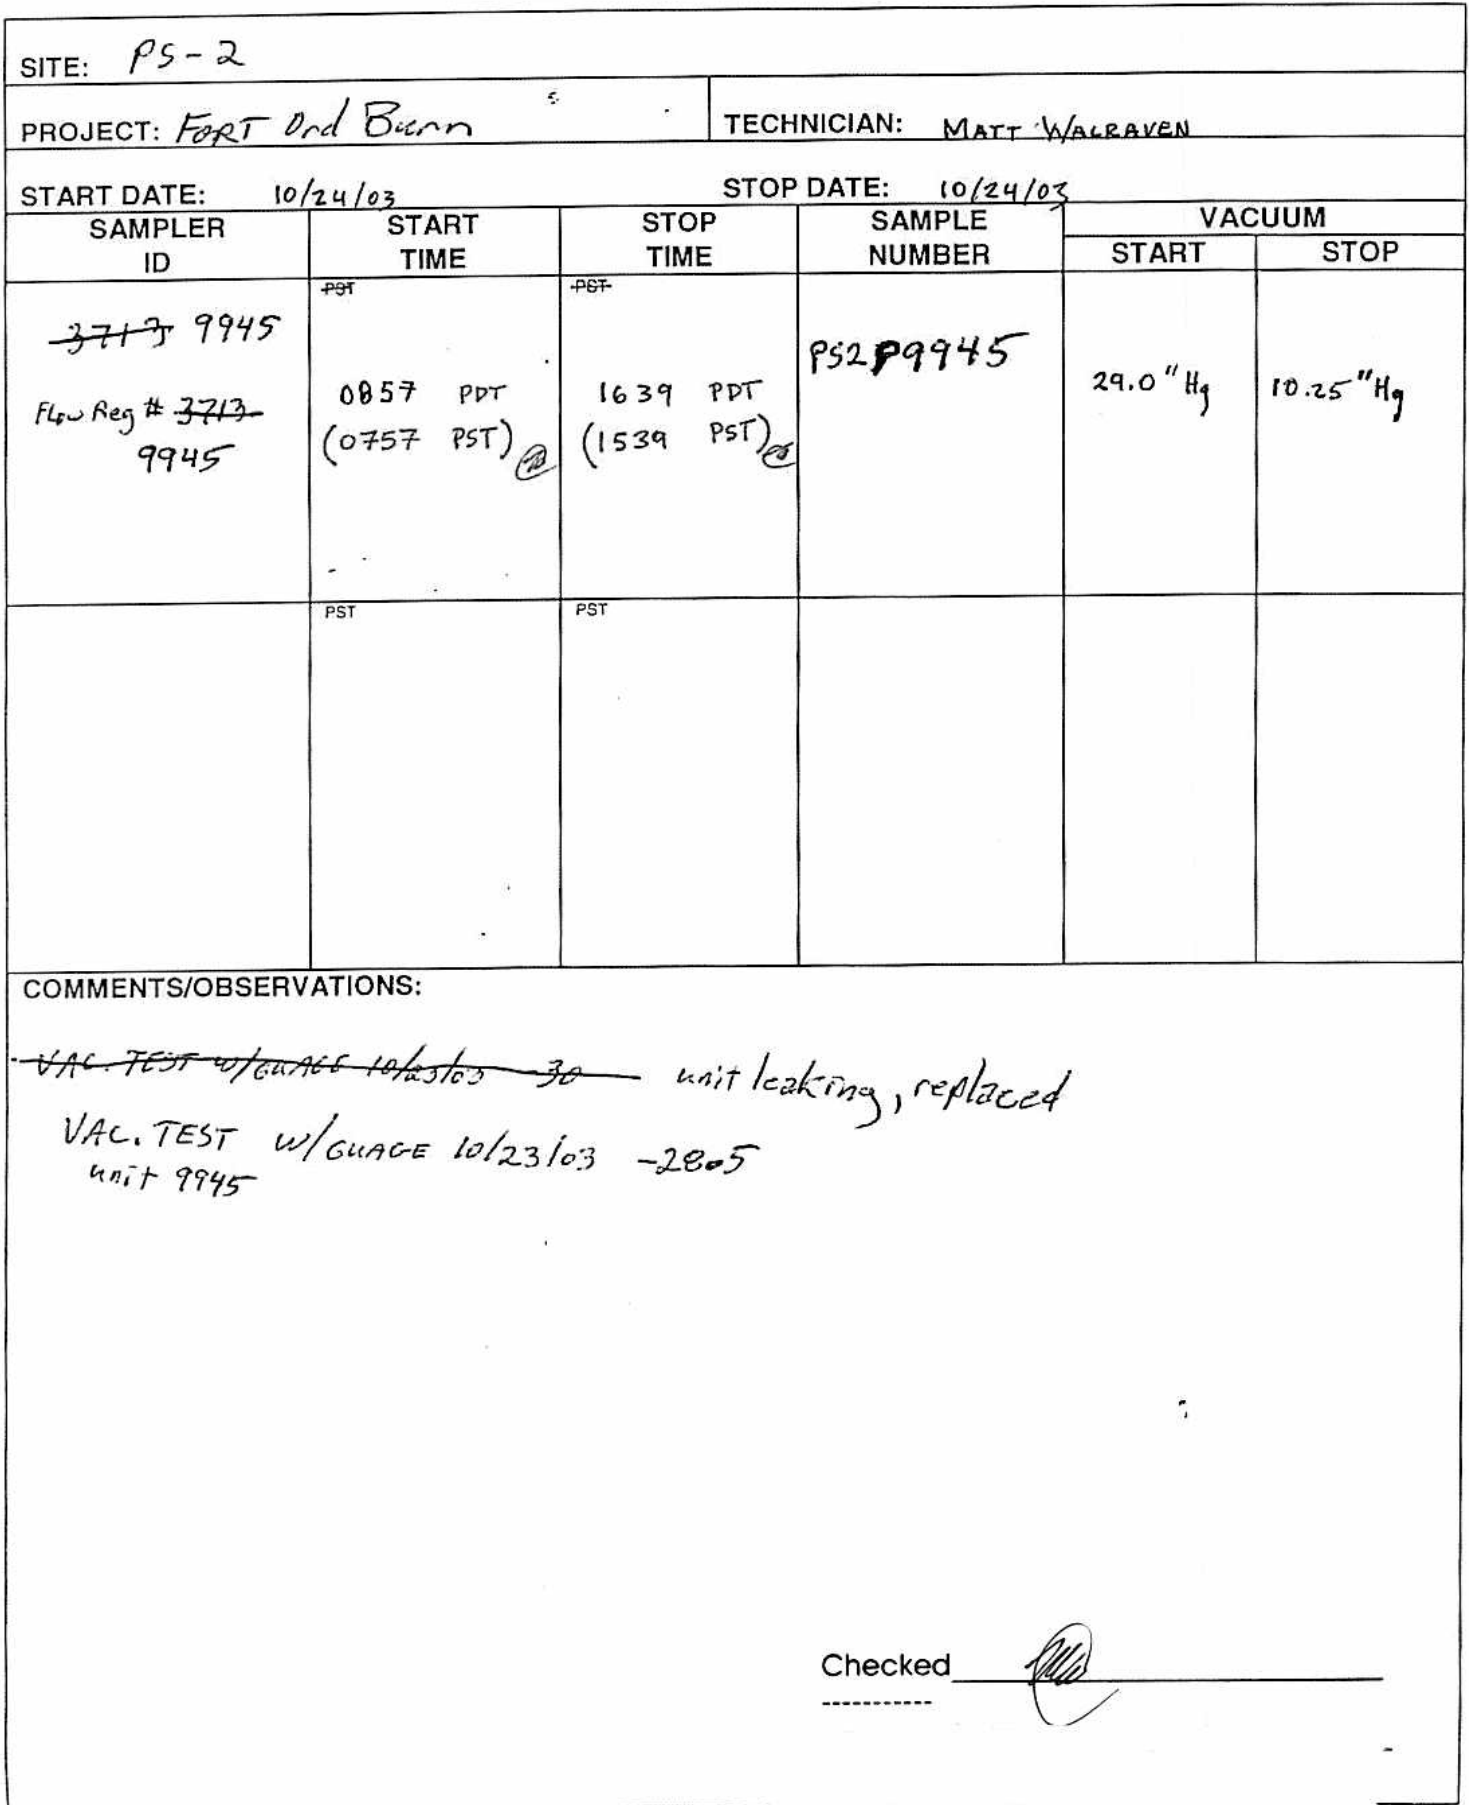 SITE: PS-2
PROJECT: FORT Ord Burn
TECHNICIAN: MATT WALRAVEN
START DATE: 10/24/03
STOP DATE: 10/24/03
SAMPLER ID
START TIME
STOP TIME
SAMPLE NUMBER
VACUUM
START
STOP
3713 9945
Flow Reg # 3713
9945
PST
0857 PDT
(0757 PST)
PST
1639 PDT
(1539 PST)
PS2P9945
29.0" Hg
10.25" Hg
PST
PST
COMMENTS/OBSERVATIONS:
VAC. TEST w/GUAGE 10/23/03 -30 unit leaking, replaced
VAC. TEST w/GUAGE 10/23/03 -28.5
unit 9945
Checked